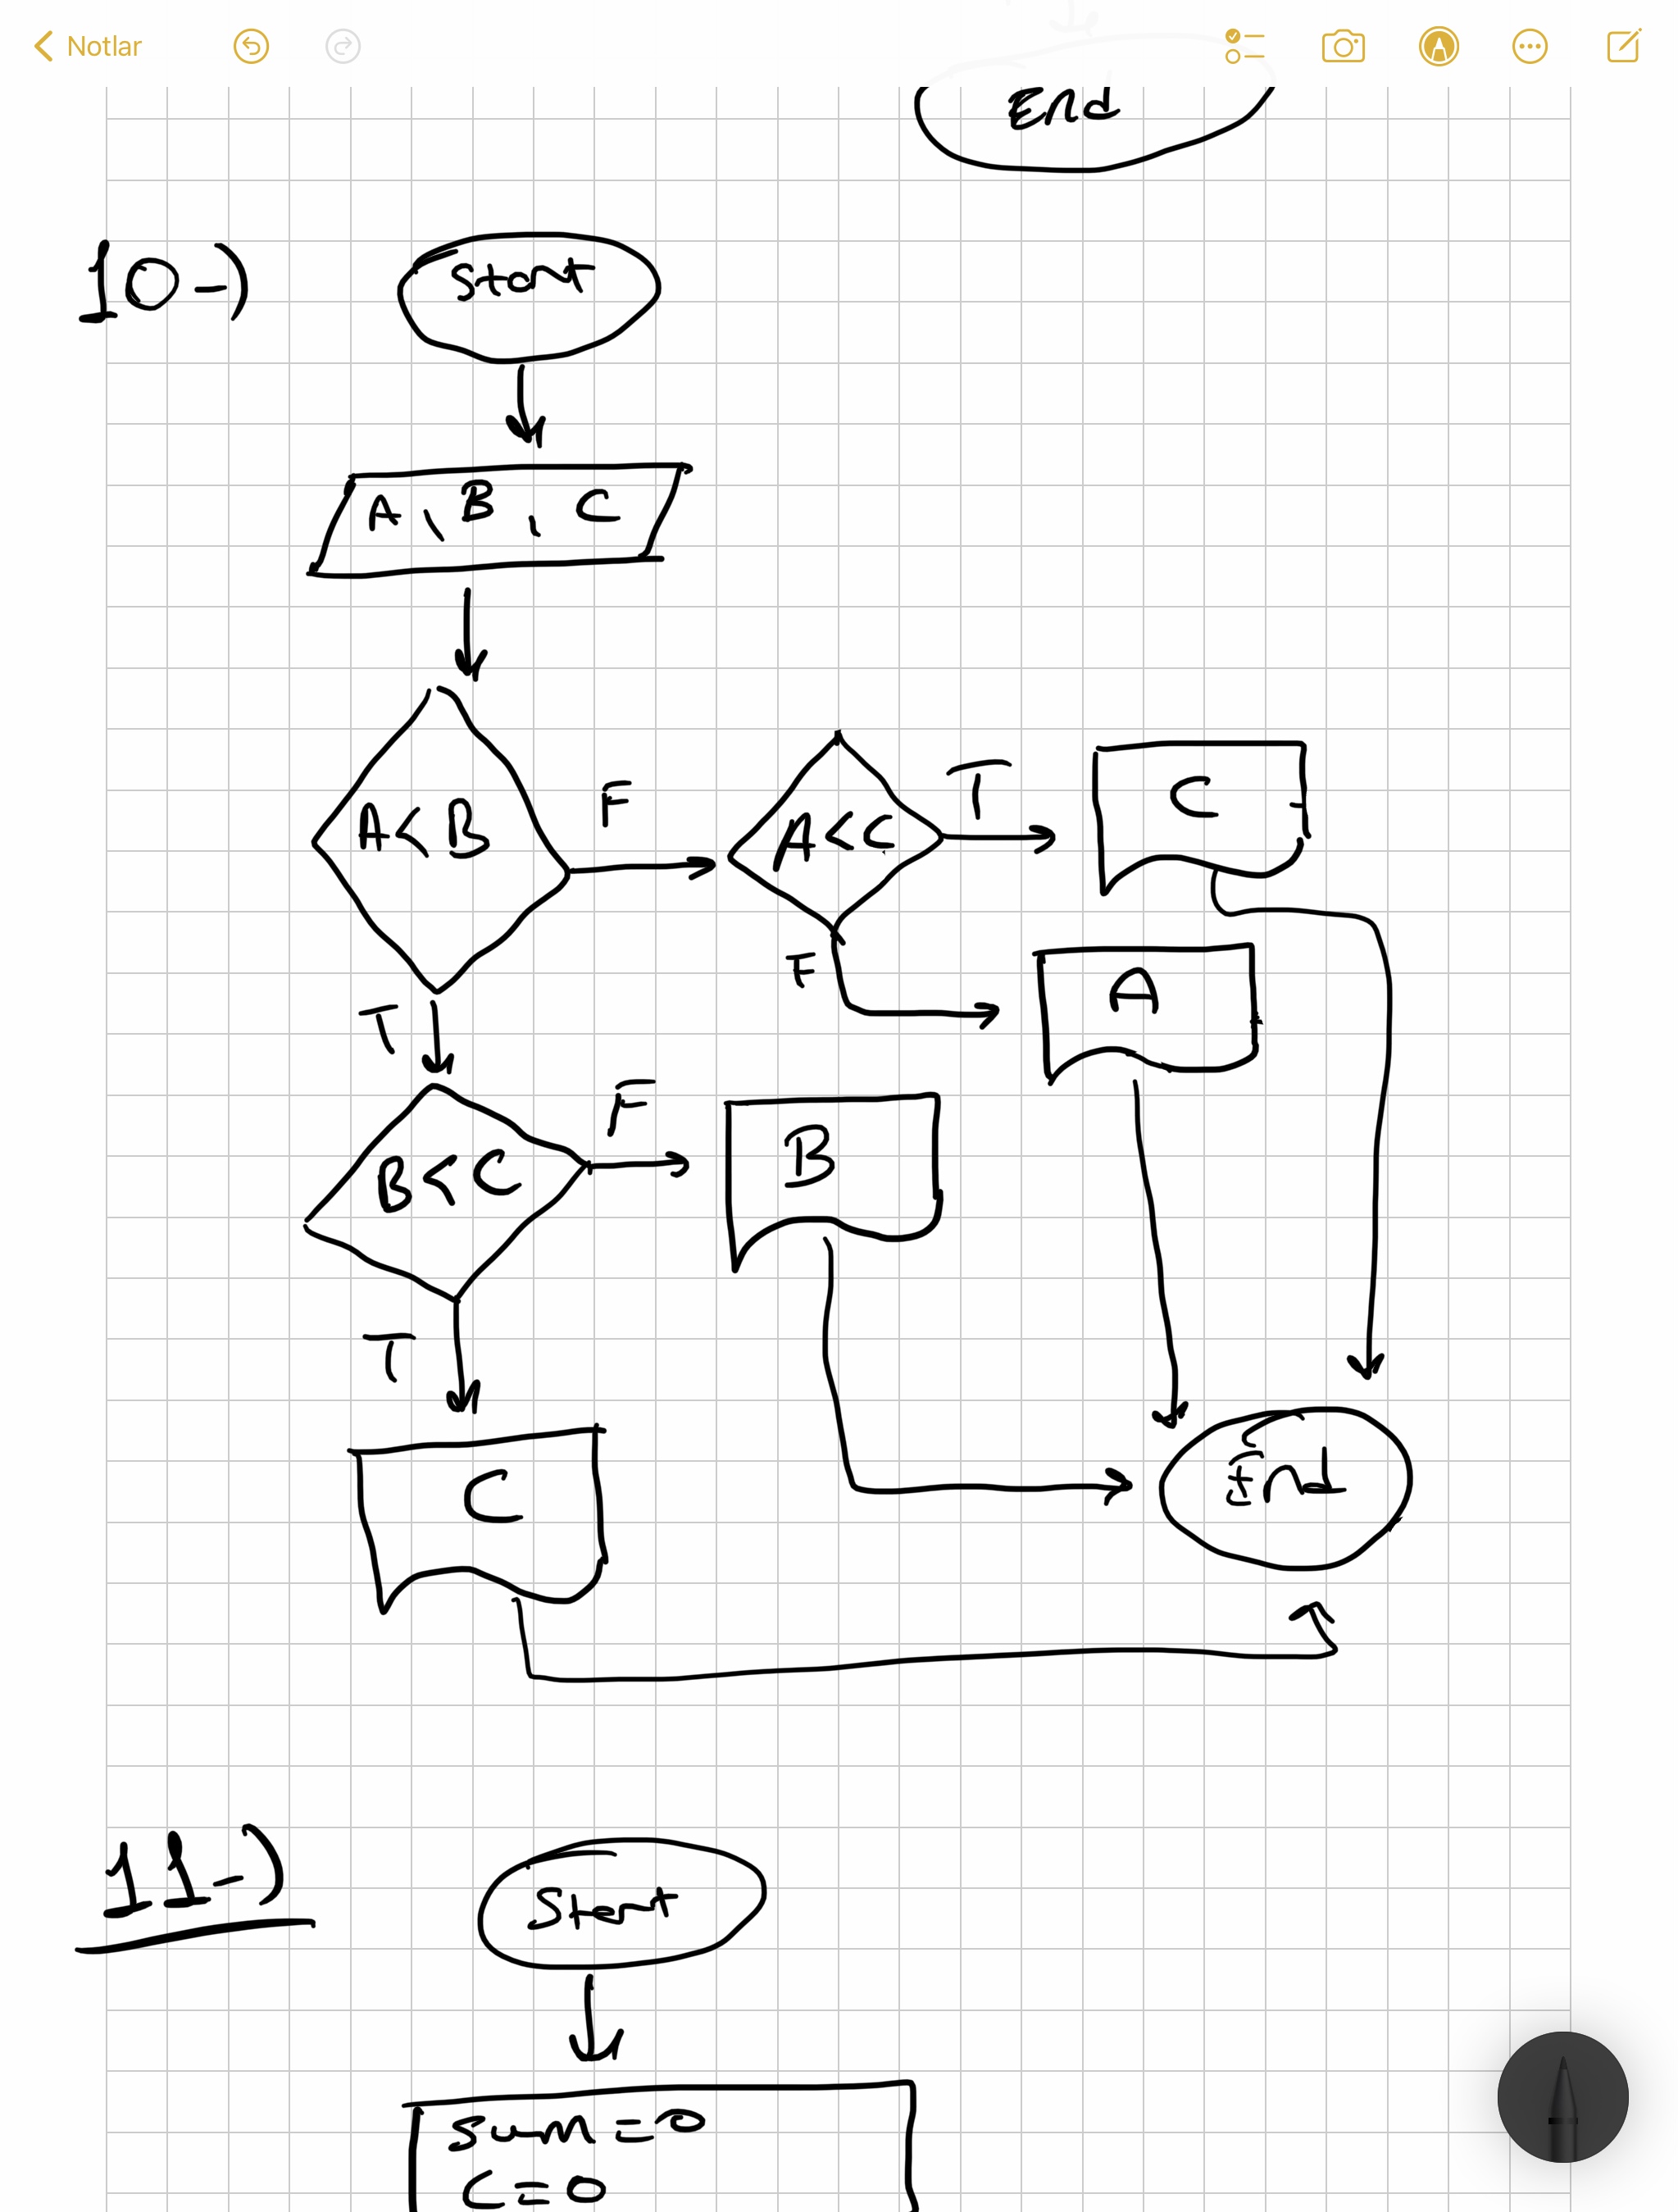 Notlar
End
10-)
Start
A, B, C
A<B
F
A<C
T
C
F
A
T
B<C
F
B
T
C
End
11-)
Start
sum=0
C=0